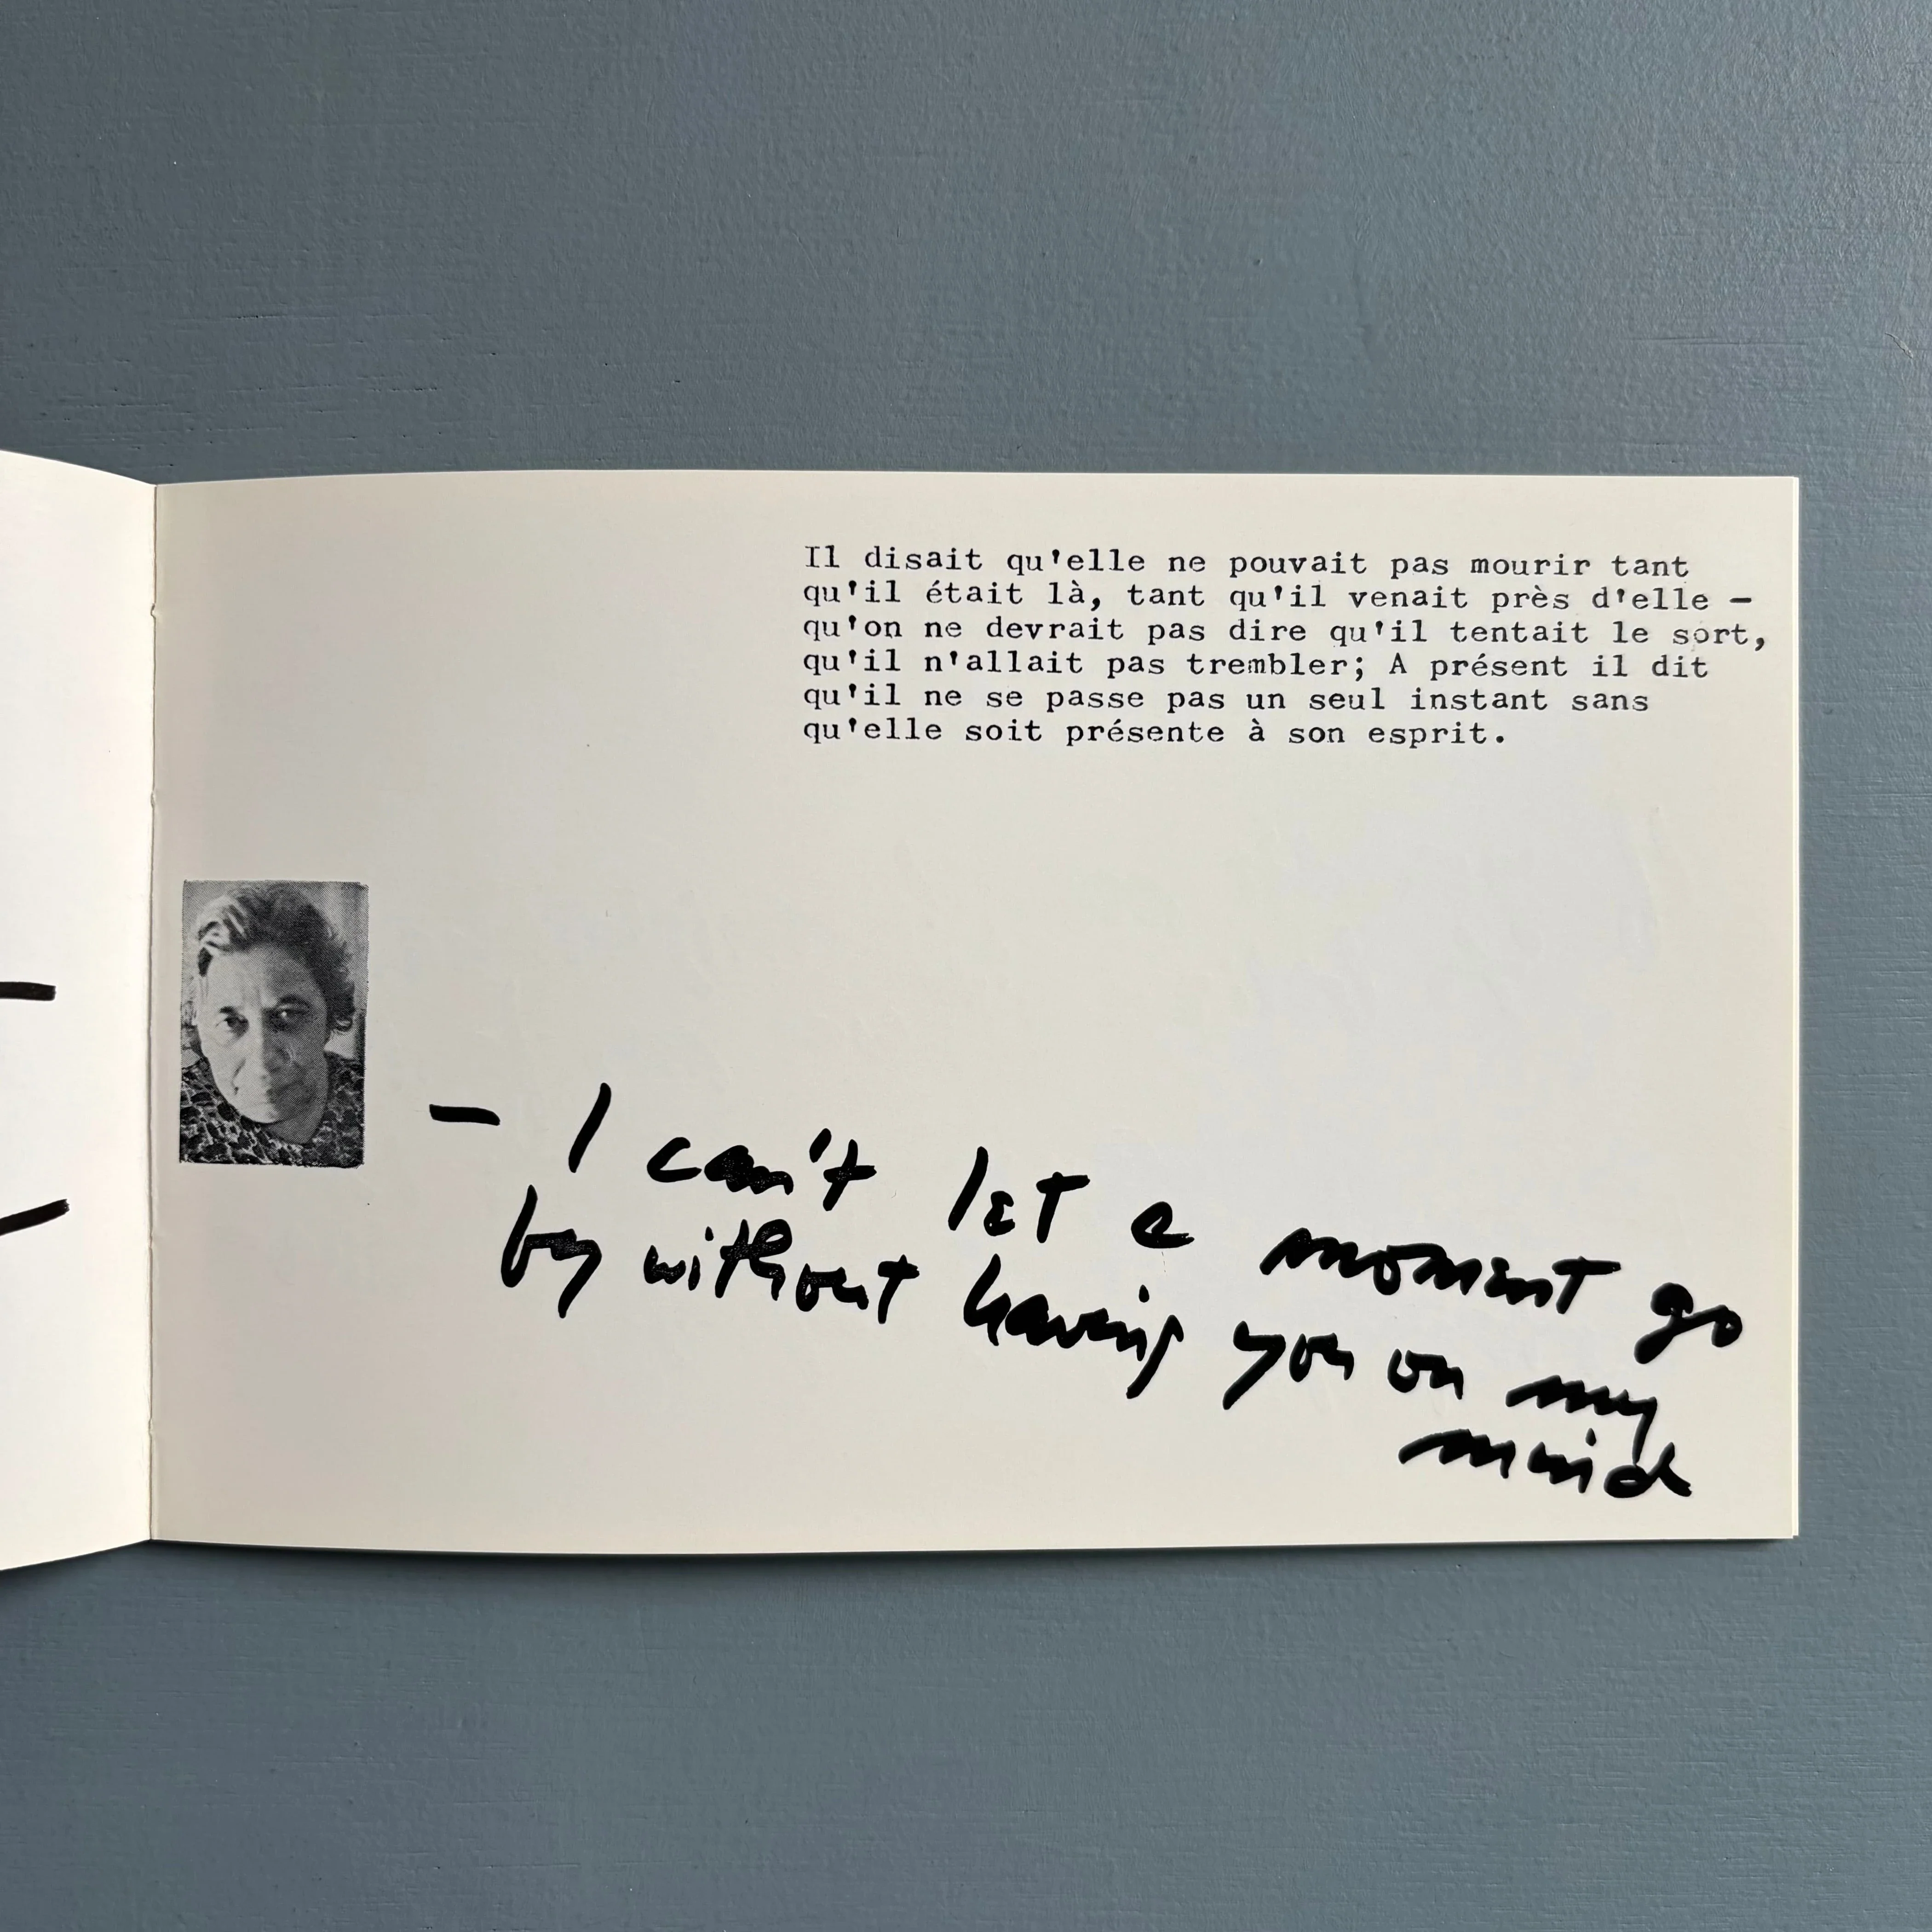 Il disait qu'elle ne pouvait pas mourir tant
qu'il était là, tant qu'il venait près d'elle —
qu'on ne devrait pas dire qu'il tentait le sort,
qu'il n'allait pas trembler; A présent il dit
qu'il ne se passe pas un seul instant sans
qu'elle soit présente à son esprit.
— I can't let a moment go
by without having you on my
mind